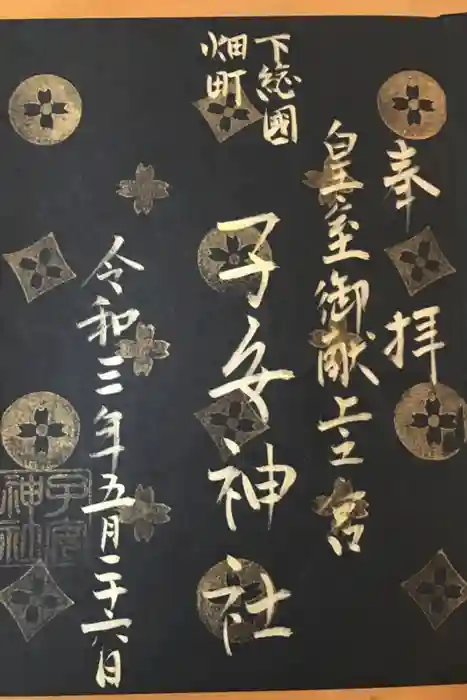 奉拝
皇室御献上之宮
下総國
畑町
子安神社
令和三年五月二十六日
子安神社